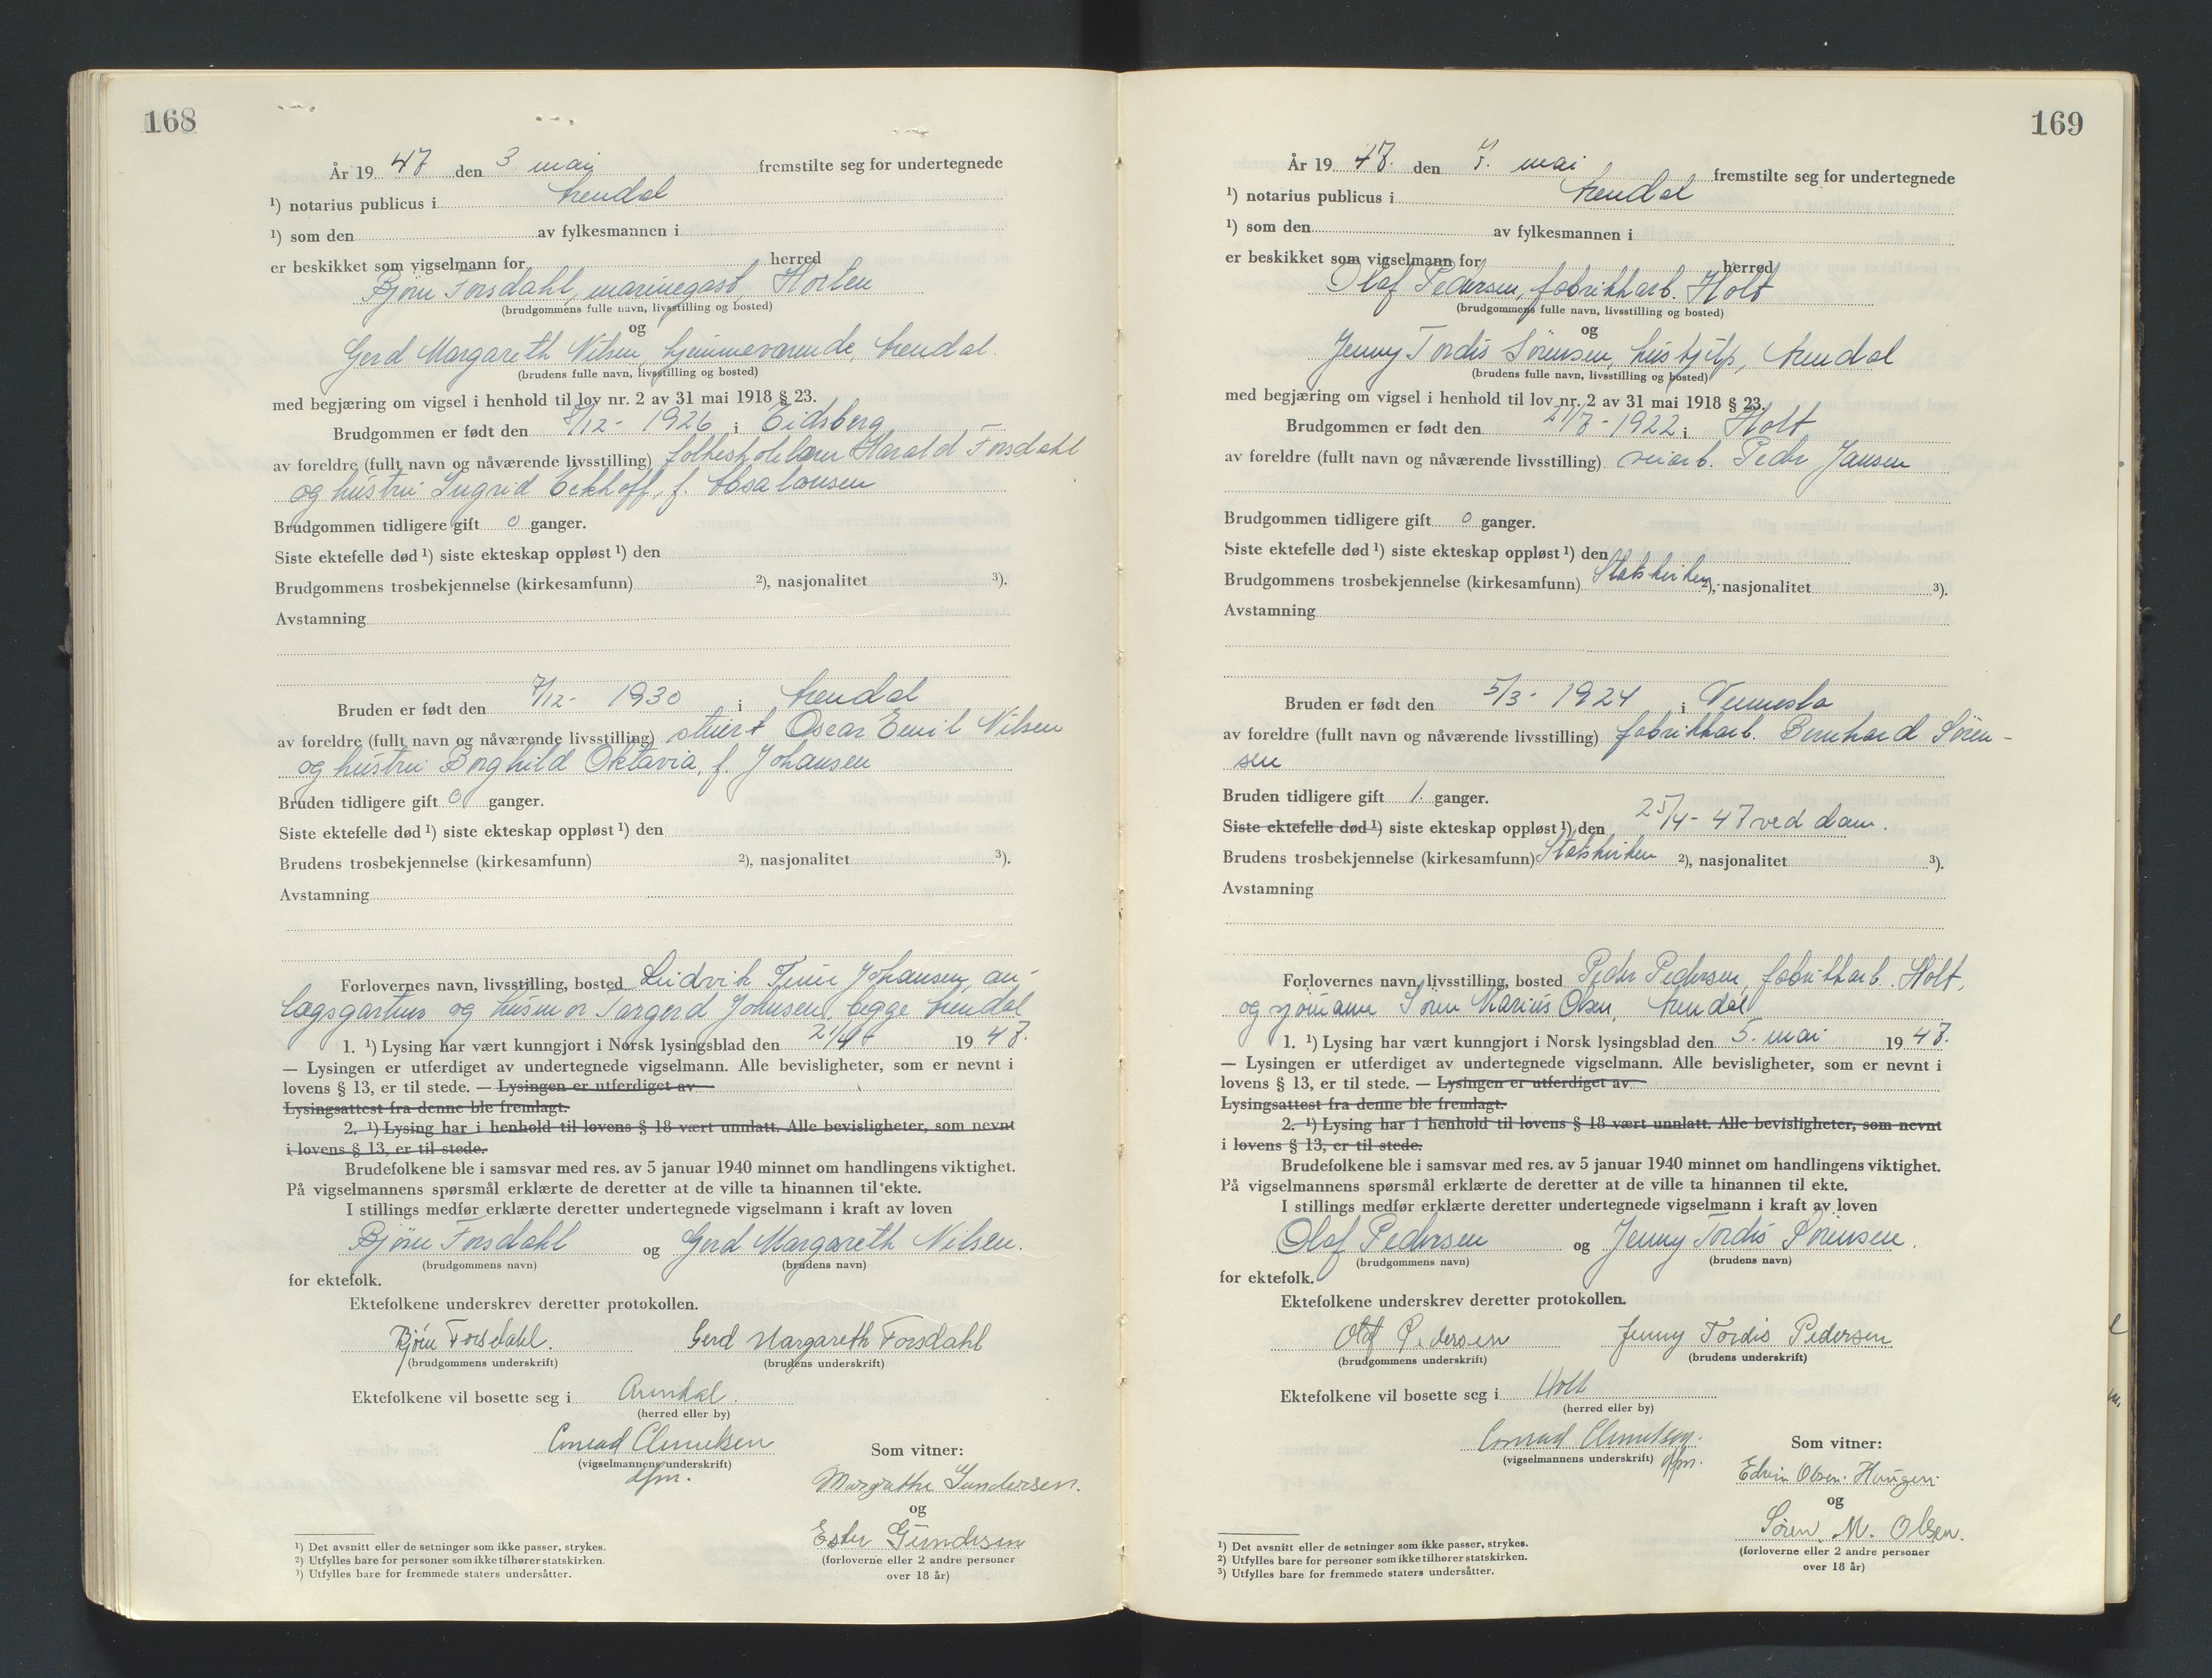 168
År 19 47 den 3 mai fremstilte seg for undertegnede
¹) notarius publicus i Arendal
¹) som den av fylkesmannen i
er beskikket som vigselmann for herred
Bjørn Forsdahl, marinegast, Horten
(brudgommens fulle navn, livsstilling og bosted)
og
Gerd Margareth Nilsen, hjemmeværende, Arendal.
(brudens fulle navn, livsstilling og bosted)
med begjæring om vigsel i henhold til lov nr. 2 av 31 mai 1918 § 23.
Brudgommen er født den 8/12- 1926 i Eidsberg
av foreldre (fullt navn og nåværende livsstilling) folkeskolelærer Harald Forsdahl
og hustru Ingrid Eckhoff, f. Absalonsen
Brudgommen tidligere gift 0 ganger.
Siste ektefelle død ¹) siste ekteskap oppløst ¹) den
Brudgommens trosbekjennelse (kirkesamfunn) ²), nasjonalitet ³).
Avstamning
Bruden er født den 7/12- 1930 i Arendal
av foreldre (fullt navn og nåværende livsstilling) stuert Oscar Emil Nilsen
og hustru Borghild Oktavia, f. Johansen
Bruden tidligere gift 0 ganger.
Siste ektefelle død ¹) siste ekteskap oppløst ¹) den
Brudens trosbekjennelse (kirkesamfunn) ²), nasjonalitet ³).
Avstamning
Forlovernes navn, livsstilling, bosted Johansen, an-
læggsgartner og husmor Torgerd Johnsen, begge Arendal
1. ¹) Lysing har vært kunngjort i Norsk lysingsblad den 21/4- 19 47.
— Lysingen er utferdiget av undertegnede vigselmann. Alle bevisligheter, som er nevnt i
lovens § 13, er til stede. — Lysingen er utferdiget av
Lysingsattest fra denne ble fremlagt.
2. ¹) Lysing har i henhold til lovens § 18 vært unnlatt. Alle bevisligheter, som nevnt
i lovens § 13, er til stede.
Brudefolkene ble i samsvar med res. av 5 januar 1940 minnet om handlingens viktighet.
På vigselmannens spørsmål erklærte de deretter at de ville ta hinannen til ekte.
I stillings medfør erklærte deretter undertegnede vigselmann i kraft av loven
Bjørn Forsdahl og Gerd Margareth Nilsen.
(brudgommens navn) (brudens navn)
for ektefolk.
Ektefolkene underskrev deretter protokollen.
Bjørn Forsdahl. Gerd Margareth Forsdahl
(brudgommens underskrift) (brudens underskrift)
Ektefolkene vil bosette seg i Arendal.
(herred eller by)
Conrad Clemetsen
(vigselmannens underskrift)
dfm.
Som vitner:
Margrethe Gundersen.
og
Ester Gundersen
(forloverne eller 2 andre personer
over 18 år)
¹) Det avsnitt eller de setninger som ikke passer, strykes.
²) Utfylles bare for personer som ikke tilhører statskirken.
³) Utfylles bare for fremmede staters undersåtter.
169
År 19 47. den 7. mai fremstilte seg for undertegnede
¹) notarius publicus i Arendal
¹) som den av fylkesmannen i
er beskikket som vigselmann for herred
Olaf Pedersen, fabrikkarb. Holt
(brudgommens fulle navn, livsstilling og bosted)
og
Jenny Tordis Sørensen, hushjelp, Arendal
(brudens fulle navn, livsstilling og bosted)
med begjæring om vigsel i henhold til lov nr. 2 av 31 mai 1918 § 23.
Brudgommen er født den 21/7-1922 i Holt
av foreldre (fullt navn og nåværende livsstilling) veiarb. Peder Jansen
Brudgommen tidligere gift 0 ganger.
Siste ektefelle død ¹) siste ekteskap oppløst ¹) den
Brudgommens trosbekjennelse (kirkesamfunn) Statskirken ²), nasjonalitet ³).
Avstamning
Bruden er født den 5/3- 1924 i Vennesla
av foreldre (fullt navn og nåværende livsstilling) fabrikkarb. Bernhard Søren-
sen
Bruden tidligere gift 1. ganger.
Siste ektefelle død ¹) siste ekteskap oppløst ¹) den 25/4- 47 ved dom.
Brudens trosbekjennelse (kirkesamfunn) Statskirken ²), nasjonalitet ³).
Avstamning
Forlovernes navn, livsstilling, bosted Peder Pedersen, fabrikkarb. Holt,
og sjømann Søren Marius Olsen, Arendal
1. ¹) Lysing har vært kunngjort i Norsk lysingsblad den 5. mai 19 47.
— Lysingen er utferdiget av undertegnede vigselmann. Alle bevisligheter, som er nevnt i
lovens § 13, er til stede. — Lysingen er utferdiget av
Lysingsattest fra denne ble fremlagt.
2. ¹) Lysing har i henhold til lovens § 18 vært unnlatt. Alle bevisligheter, som nevnt
i lovens § 13, er til stede.
Brudefolkene ble i samsvar med res. av 5 januar 1940 minnet om handlingens viktighet.
På vigselmannens spørsmål erklærte de deretter at de ville ta hinannen til ekte.
I stillings medfør erklærte deretter undertegnede vigselmann i kraft av loven
Olaf Pedersen og Jenny Tordis Sørensen.
(brudgommens navn) (brudens navn)
for ektefolk.
Ektefolkene underskrev deretter protokollen.
Olaf Pedersen Jenny Tordis Pedersen
(brudgommens underskrift) (brudens underskrift)
Ektefolkene vil bosette seg i Holt
(herred eller by)
Conrad Clemetsen.
(vigselmannens underskrift) dfm.
Som vitner:
Edvin Olsen Haugen.
og
Søren M. Olsen.
(forloverne eller 2 andre personer
over 18 år)
¹) Det avsnitt eller de setninger som ikke passer, strykes.
²) Utfylles bare for personer som ikke tilhører statskirken.
³) Utfylles bare for fremmede staters undersåtter.